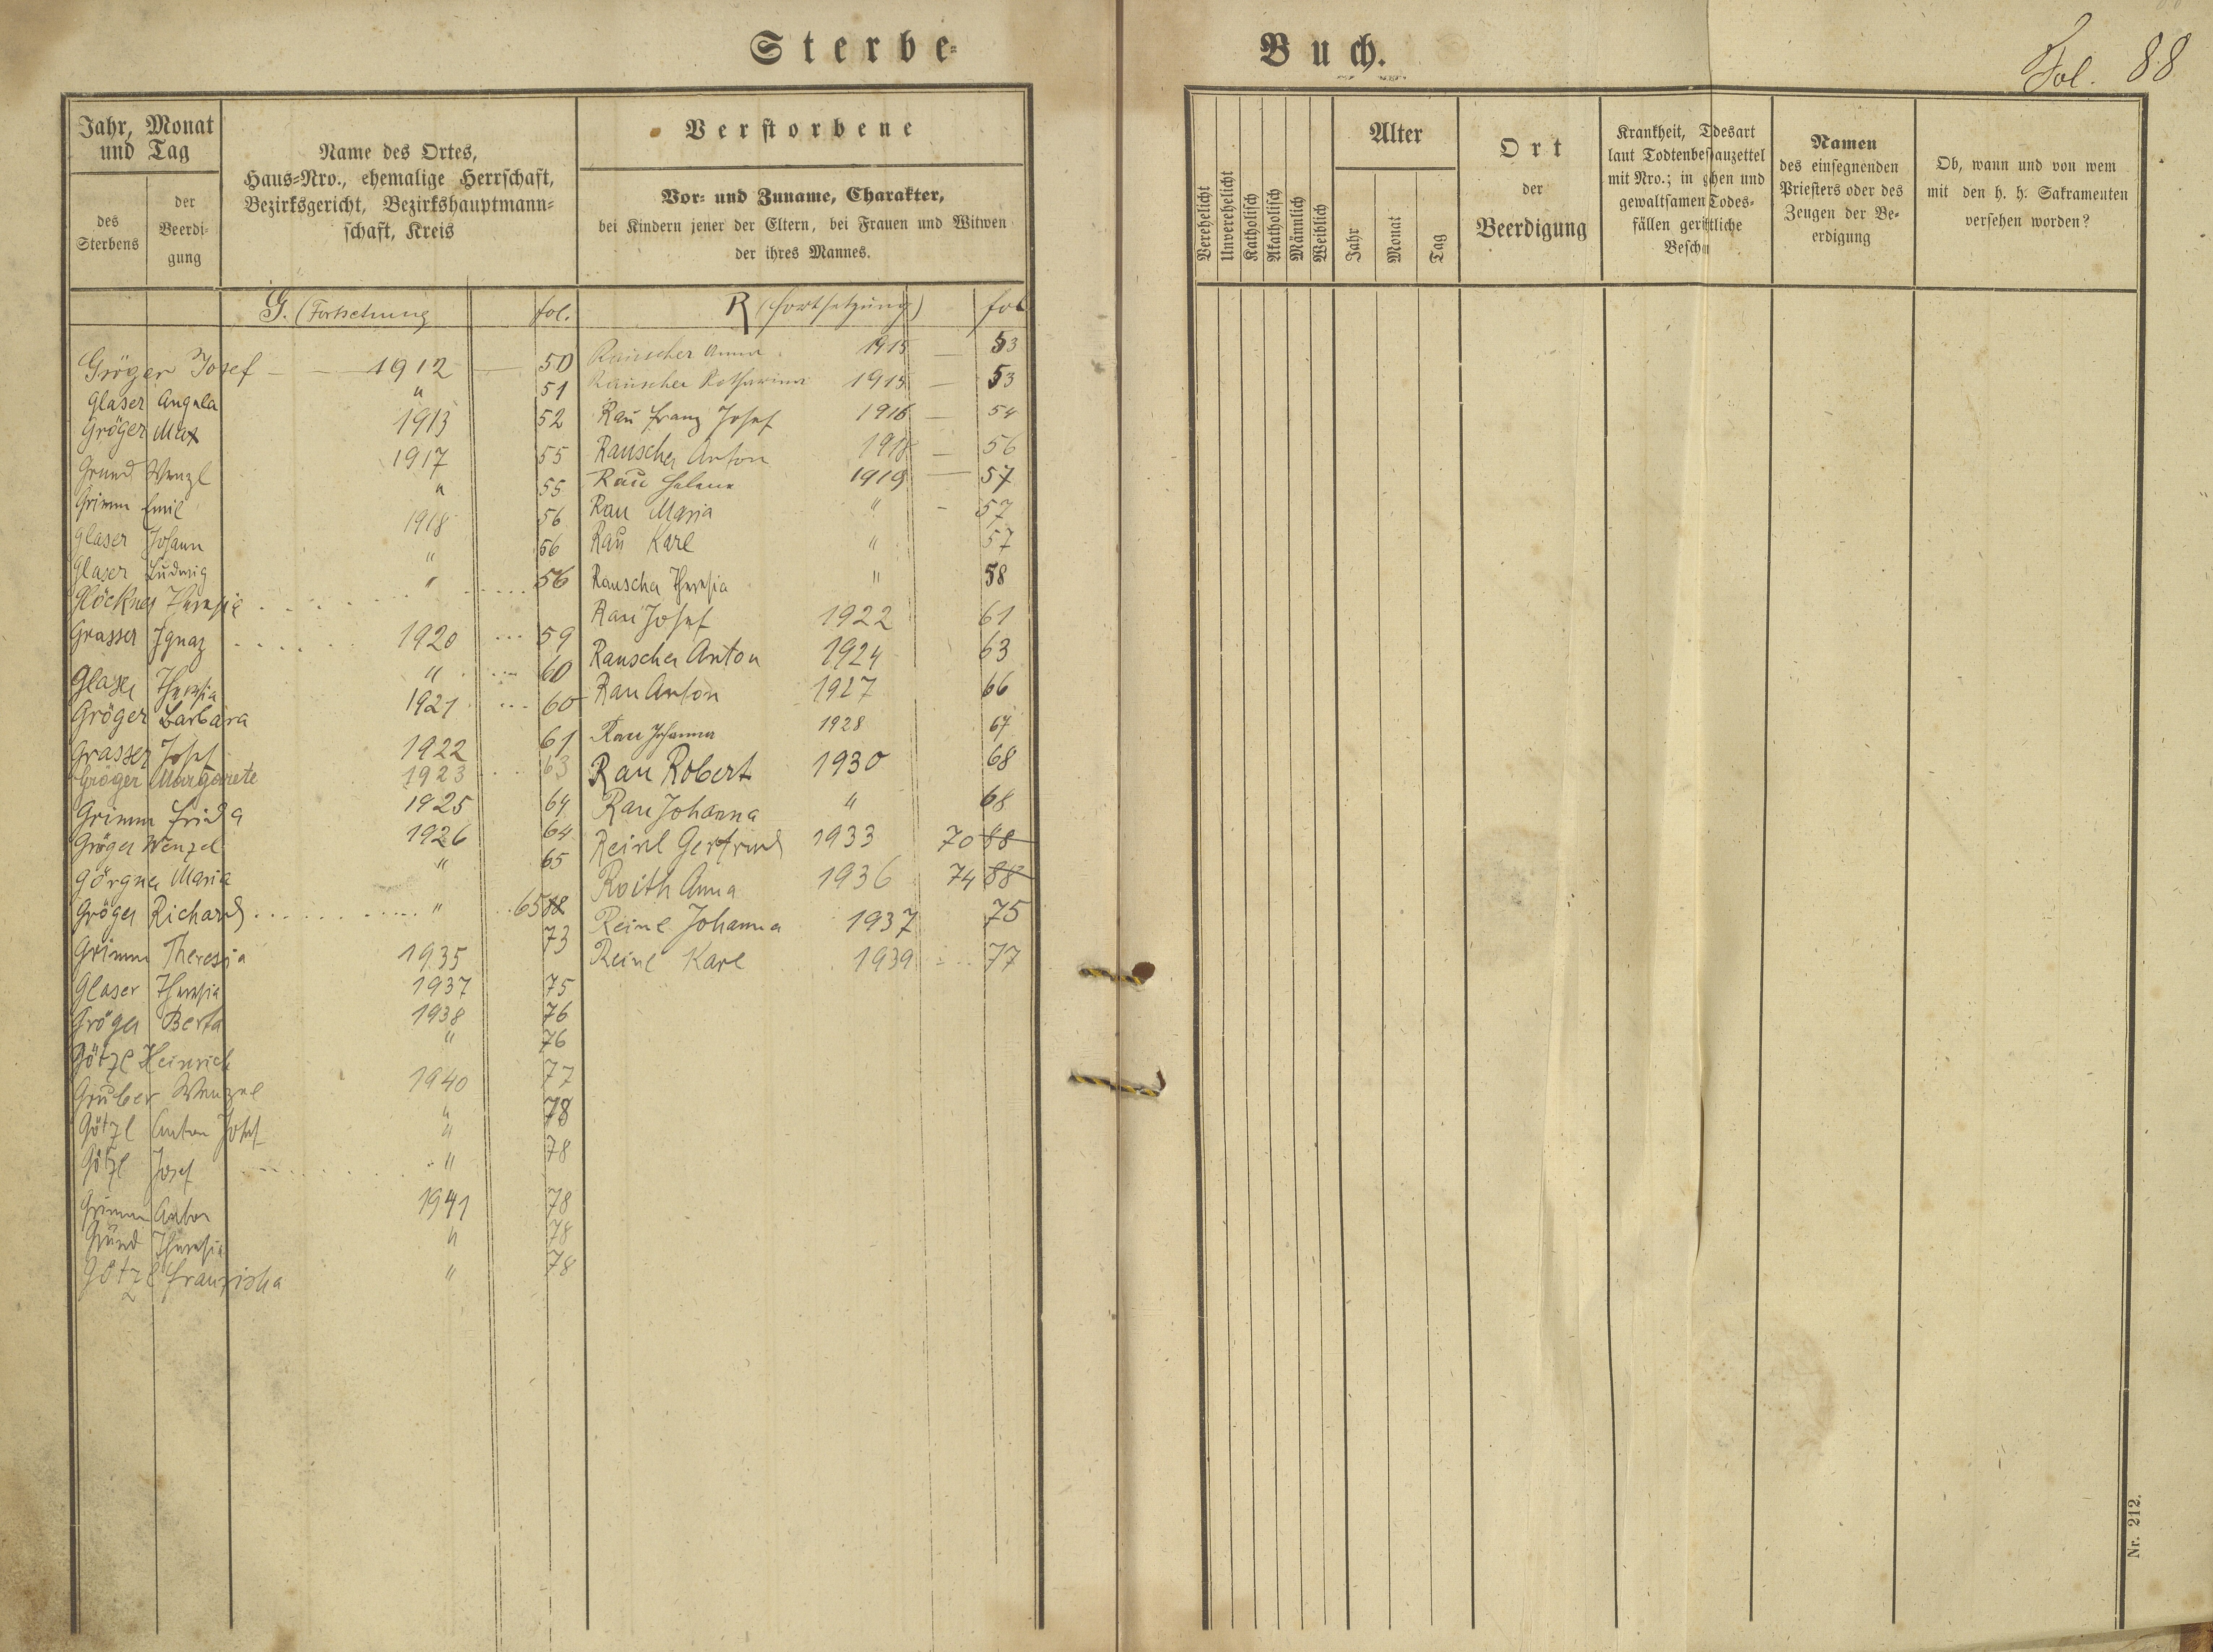 Sterbe-
Buch.
Fol. 88
Jahr, Monat
und Tag
des
Sterbens
der
Beerdi-
gung
Name des Ortes,
Haus-Nro., ehemalige Herrschaft,
Bezirksgericht, Bezirkshauptmann-
schaft, Kreis
Verstorbene
Vor- und Zuname, Charakter,
bei Kindern jener der Eltern, bei Frauen und Witwen
der ihres Mannes.
G. (Fortsetzung fol.
Gröger Josef 1912 50
Glaser Angela " 51
Gröger Max 1913 52
Grund Wenzl 1917 55
Grimm Emil " 55
Glaser Johann 1918 56
Glaser Ludwig " 56
Glöckner Theresia " 56
Grasser Ignaz 1920 59
Glaser Theresia " 60
Gröger Barbara 1921 60
Grasser Josef 1922 61
Gröger Margarete 1923 63
Grimm Frida 1925 64
Gröger Wenzel 1926 64
Görgner Maria " 65
Gröger Richard " 65 88
Grimm Theresia 1935 73
Glaser Theresia 1937 75
Gröger Berta 1938 76
Götzl Heinrich " 76
Gruber Wenzel 1940 77
Götzl Anton Josef " 78
Götzl Josef " 78
Grimm Anton 1941 78
Gründ Theresia " 78
Götzl Franziska " 78
R (Fortsetzung) fol
Rauscher Anna 1915 — 53
Rauscher Katharina 1915 — 53
Rau Franz Josef 1916 — 54
Rauscher Anton 1918 — 56
Rau Helene 1919 — 57
Rau Maria " - 57
Rau Karl " 57
Rauscher Theresia " 58
Rau Josef 1922 61
Rauscher Anton 1924 63
Rau Anton 1927 66
Rau Johanna 1928 67
Rau Robert 1930 68
Rau Johanna " 68
Reinl Gertrud 1933 70 88
Roith Anna 1936 74 88
Reinl Johanna 1937 75
Reinl Karl 1939 77
Verehelicht
Unverehelicht
Katholisch
Akatholisch
Männlich
Weiblich
Alter
Jahr
Monat
Tag
Ort
der
Beerdigung
Krankheit, Tdesart
laut Todtenbeschauzettel
mit Nro.; in hen und
gewaltsamen Todes-
fällen gerichtliche
Besch
Namen
des einsegnenden
Priesters oder des
Zeugen der Be-
erdigung
Ob, wann und von wem
mit den h. h. Sakramenten
versehen worden?
Nr. 212.